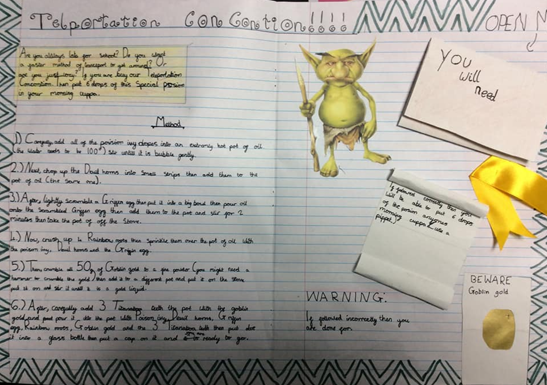 Telportation ConCoction!!!!
OPEN
Are you always late for school? Do you want
a faster method of transport to get around? Or
are you just lazy? If you are buy our Teleportation
Concoction. Then put 5 drops of this special
in your morning cuppa.
Method
1.) Carefully add all of the poision ivy into an extremly hot pot of oil
(the water needs to be 100°) stir until it is bubble gently.
2.) Next, chop up the Devil horns into small strips then add them to the
pot of oil (the same one).
3.) After, lightly scramble a Griffin egg then put it into a big bowl then pour oil
over the scrambled Griffin egg then add them to the pot and stir for 2
minutes then take the pot off the stove.
4.) Now, crush up 4 Rainbow roses then sprinkle them over the pot of oil with
the poision ivy, Devil horns and the Griffin egg.
5.) Then crumble 50g of Goblin gold to a fine powder (you might need a
hammer to crumble the gold) then add it to a different pot and put it on the stove
put it on and stir it until it is a gold liquid.
6.) After, carefully add 3 with the pot with the goblin
gold and pour it into the pot with Poision ivy, Devil horns, Griffin
egg, Rainbow roses, Goblin gold and the 3 then put
it into a glass bottle then put a cap on it and ready to go.
YOU
will
need
If followed correctly then you
will be able to put 5 drops
of the poision anymore
morning cuppa like a
WARNING.
If followed incorrectly than you
are done for.
BEWARE
Goblin gold